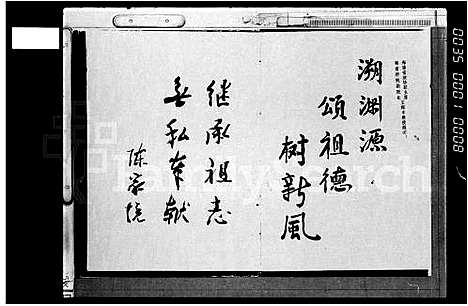 溯渊源
頌祖德
树新風
继承祖志
無私奉献
陈家境
FamilySearch
0035
0001
8000